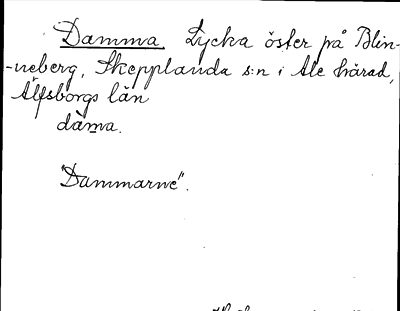 Damma. Lycka öster på Blin-
-neberg, Skepplanda s:n i Ale härad,
Älfsborgs län
dàma.
"Dammarne".